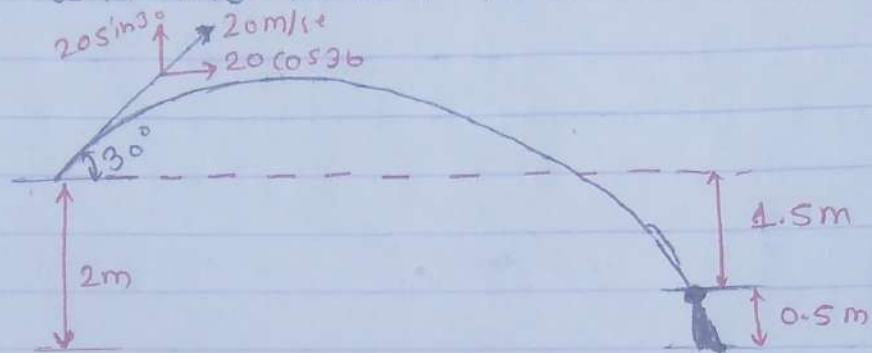 20sin30
20m/se
20cos30
30°
1.5m
2m
0.5m